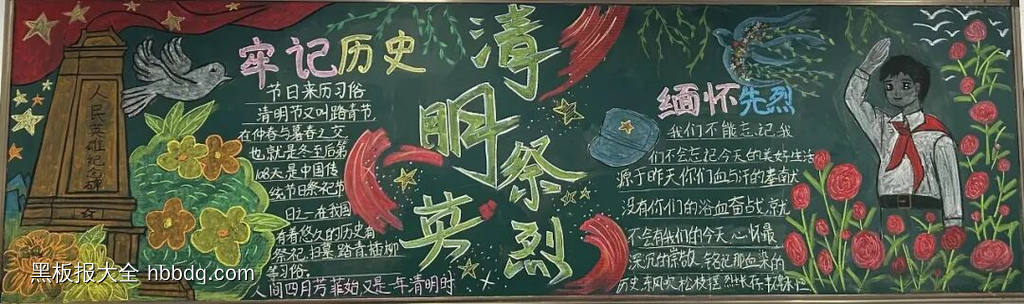 清明祭英烈
牢记历史
节日来历习俗
清明节又叫踏青节
在仲春与暮春之交
也就是冬至后第
108天是中国传
统节日祭祀节
日之一在我国
有着悠久的历史有
祭祀扫墓踏青插柳
等习俗。
人间四月芳菲始又是一年清明时
人民英雄纪念碑
缅怀先烈
我们不能忘记我
们不会忘记今天的美好生活
源于昨天你们血与汗的奉献
没有你们的浴血奋战,就
不会有我们的今天心怀最
深沉的崇敬,铭记那血染的
历史
黑板报大全 hbbdq.com